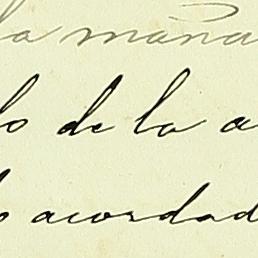 la mañana
lo de la a
acordad